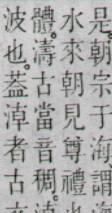 是朝宗于海謂
水來朝見尊禮
體濤古當音稠
波也葢淖者古